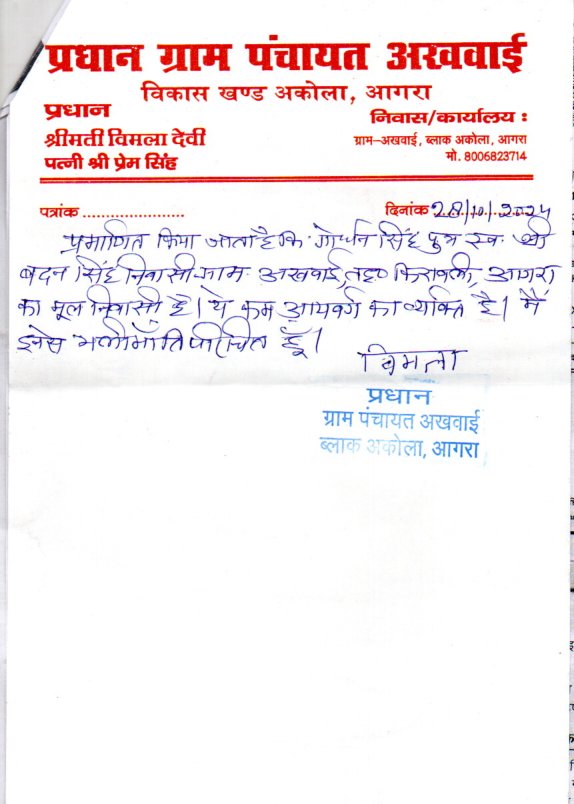 प्रधान ग्राम पंचायत अखवाई
विकास खण्ड अकोला, आगरा
प्रधान
श्रीमती विमला देवी
पत्नी श्री प्रेम सिंह
निवास/कार्यालय :
ग्राम-अखवाई, ब्लाक अकोला, आगरा
मो. 8006823714
पत्रांक ........................ दिनांक 28/10/2024
प्रमाणित किया जाता है कि गोर्धन सिंह पुत्र स्व० श्री
बदन सिंह निवासी ग्राम अखवाई, तह० किरावली, आगरा
का मूल निवासी है। ये कम आयवर्ग का व्यक्ति है। मैं
इनसे भलीभाँति परिचित हूँ।
विमला
प्रधान
ग्राम पंचायत अखवाई
ब्लाक अकोला, आगरा